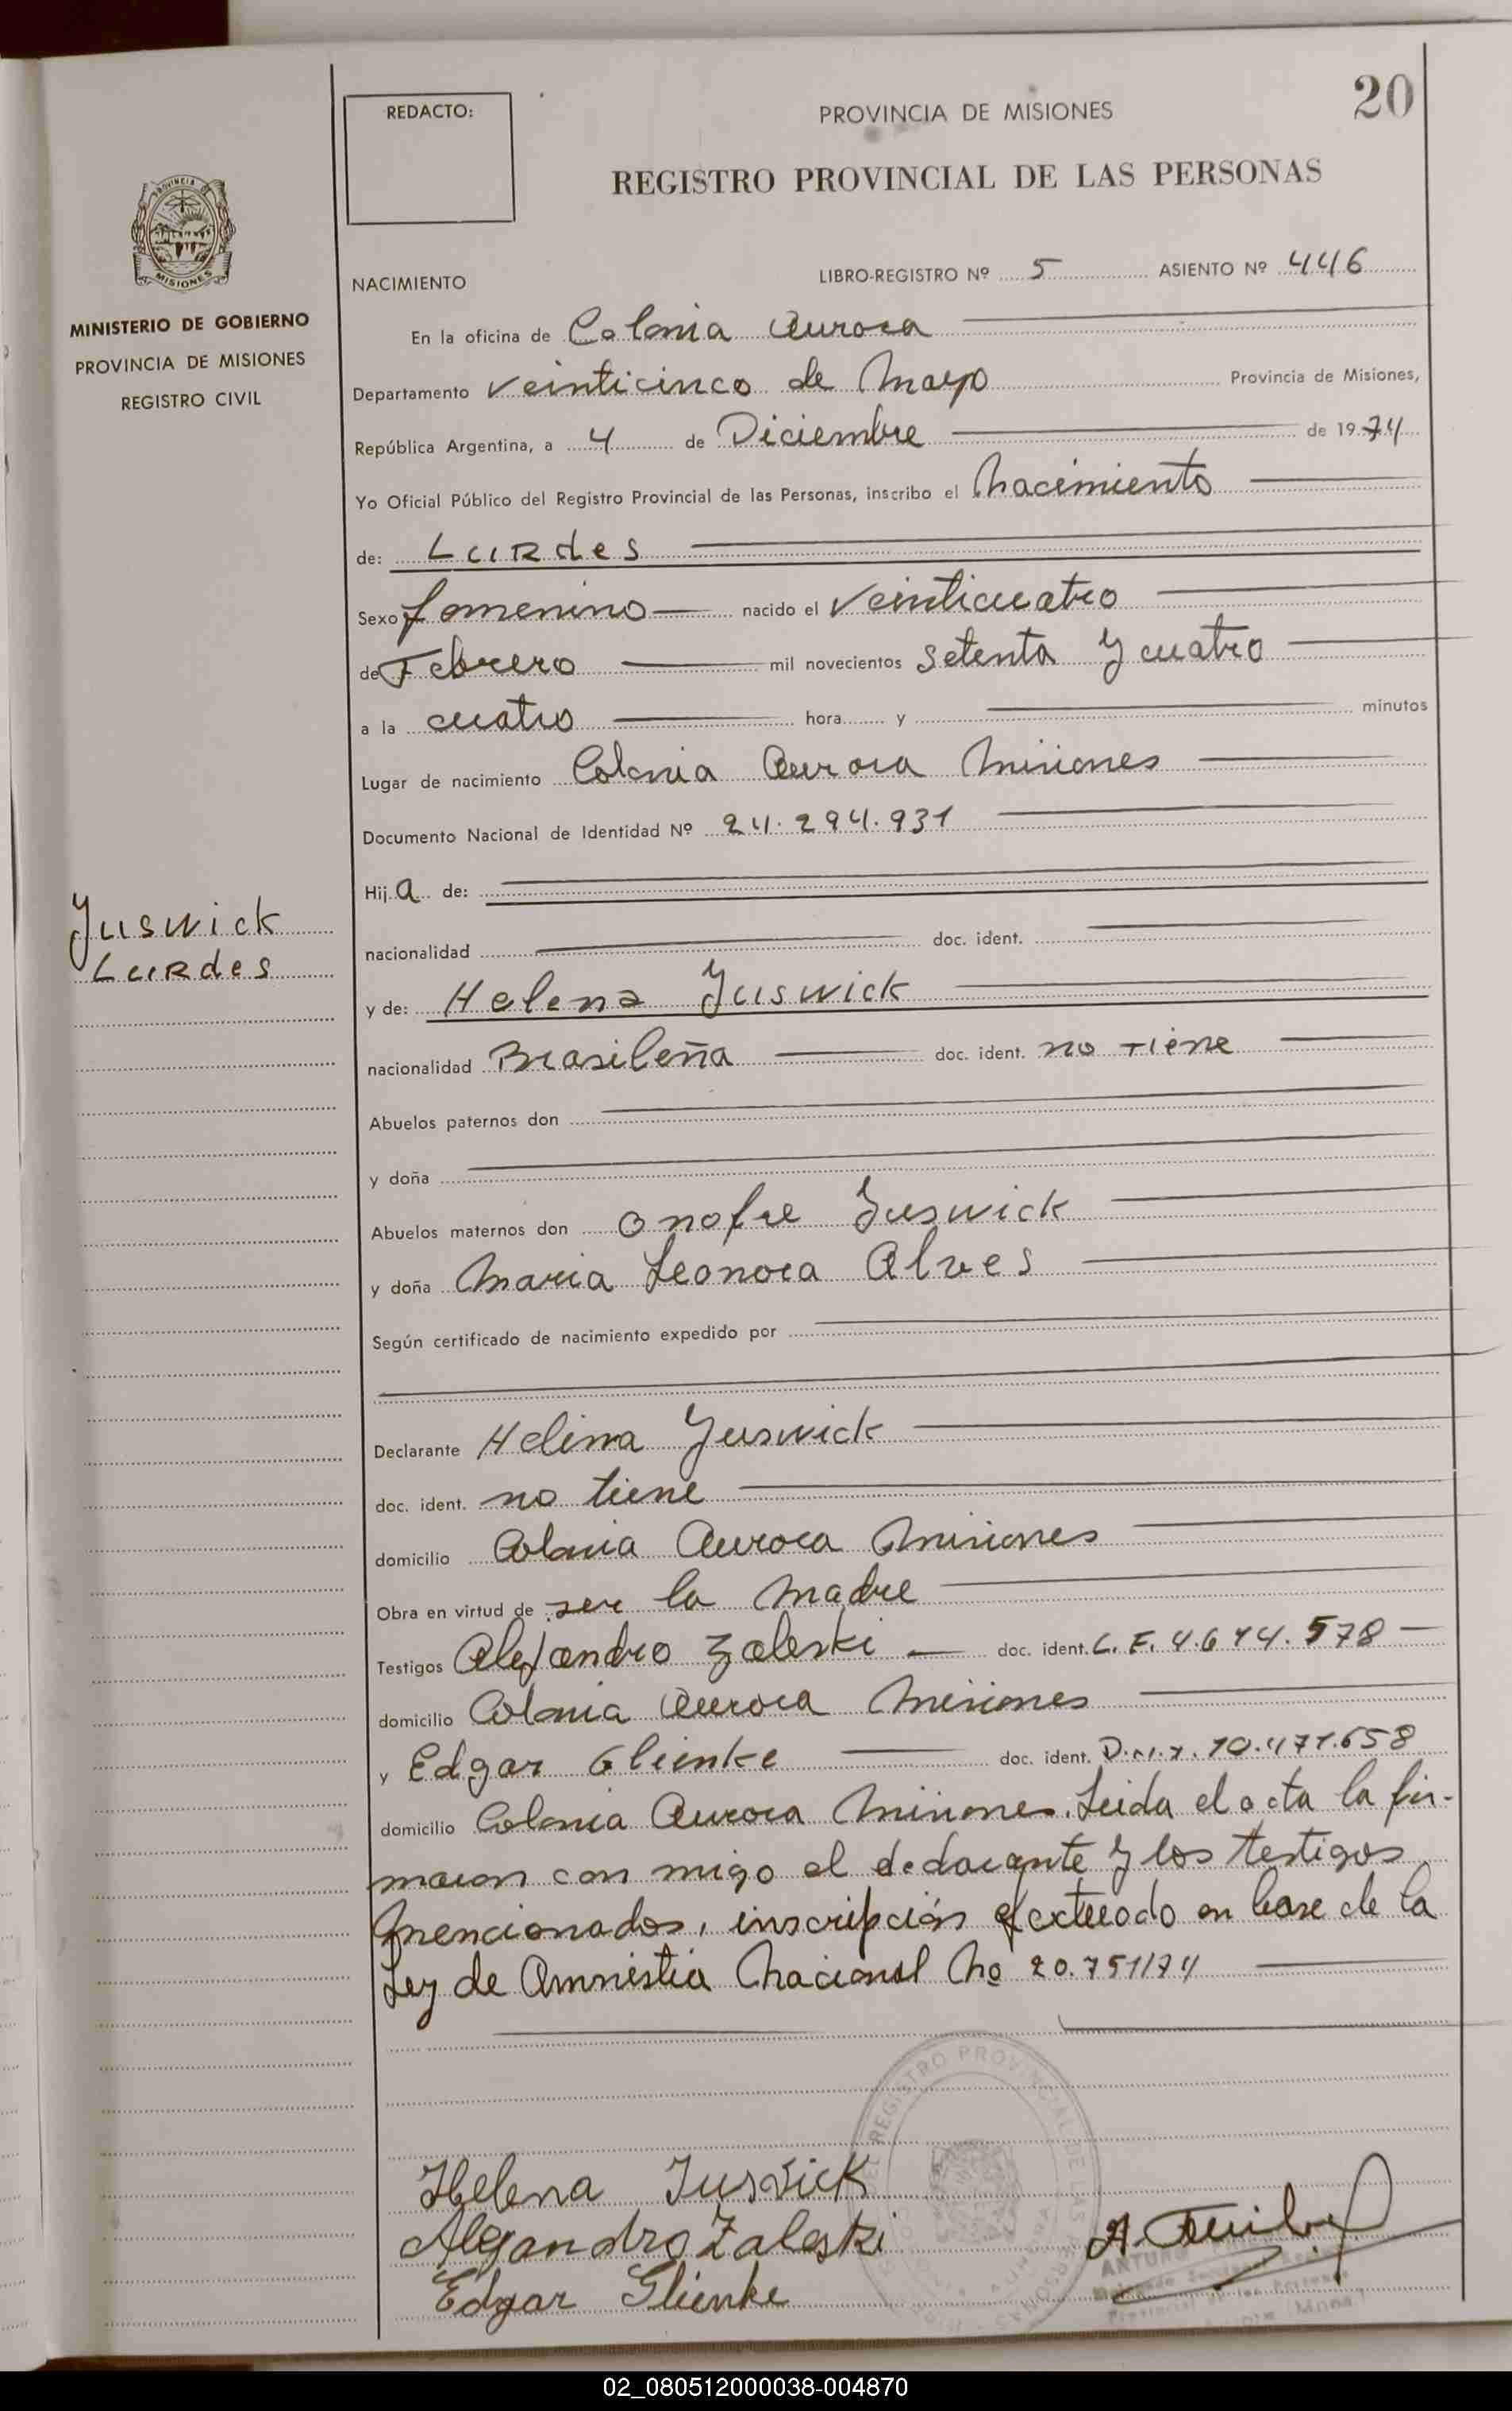 20
REDACTO:
PROVINCIA DE MISIONES
REGISTRO PROVINCIAL DE LAS PERSONAS
MISIONES
MINISTERIO DE GOBIERNO
PROVINCIA DE MISIONES
REGISTRO CIVIL
NACIMIENTO LIBRO-REGISTRO Nº 5 ASIENTO Nº 446
En la oficina de Colonia Aurora
Departamento Veinticinco de Mayo Provincia de Misiones,
República Argentina, a 4 de Diciembre de 1974
Yo Oficial Público del Registro Provincial de las Personas, inscribo el Nacimiento
de: Lurdes
Sexo femenino nacido el Veinticuatro
de Febrero mil novecientos setenta y cuatro
a la cuatro hora y minutos
Lugar de nacimiento Colonia Aurora Misiones
Documento Nacional de Identidad Nº 24.294.931
Hija de:
nacionalidad doc. ident.
Juswick
Lurdes
y de: Helena Juswick
nacionalidad Brasileña doc. ident. no tiene
Abuelos paternos don
y doña
Abuelos maternos don Onofre Juswick
y doña Maria Leonora Alves
Según certificado de nacimiento expedido por
Declarante Helena Juswick
doc. ident. no tiene
domicilio Colonia Aurora Misiones
Obra en virtud de ser la Madre
Testigos Alejandro Zaleski doc. ident. L.E. 4.674.578
domicilio Colonia Aurora Misiones
y Edgar Glienke doc. ident. D.N.I. 10.471.658
domicilio Colonia Aurora Misiones. Leida el acta la fir-
maron con migo el declarante y los testigos
mencionados, inscripción efectuado en base de la
Ley de Amnistia Nacional Nº 20.751/74
REGISTRO PROVINCIAL DE LAS PERSONAS
Helena Juswick
Alejandro Zaleski
Edgar Glienke
ARTURO
02_080512000038-004870